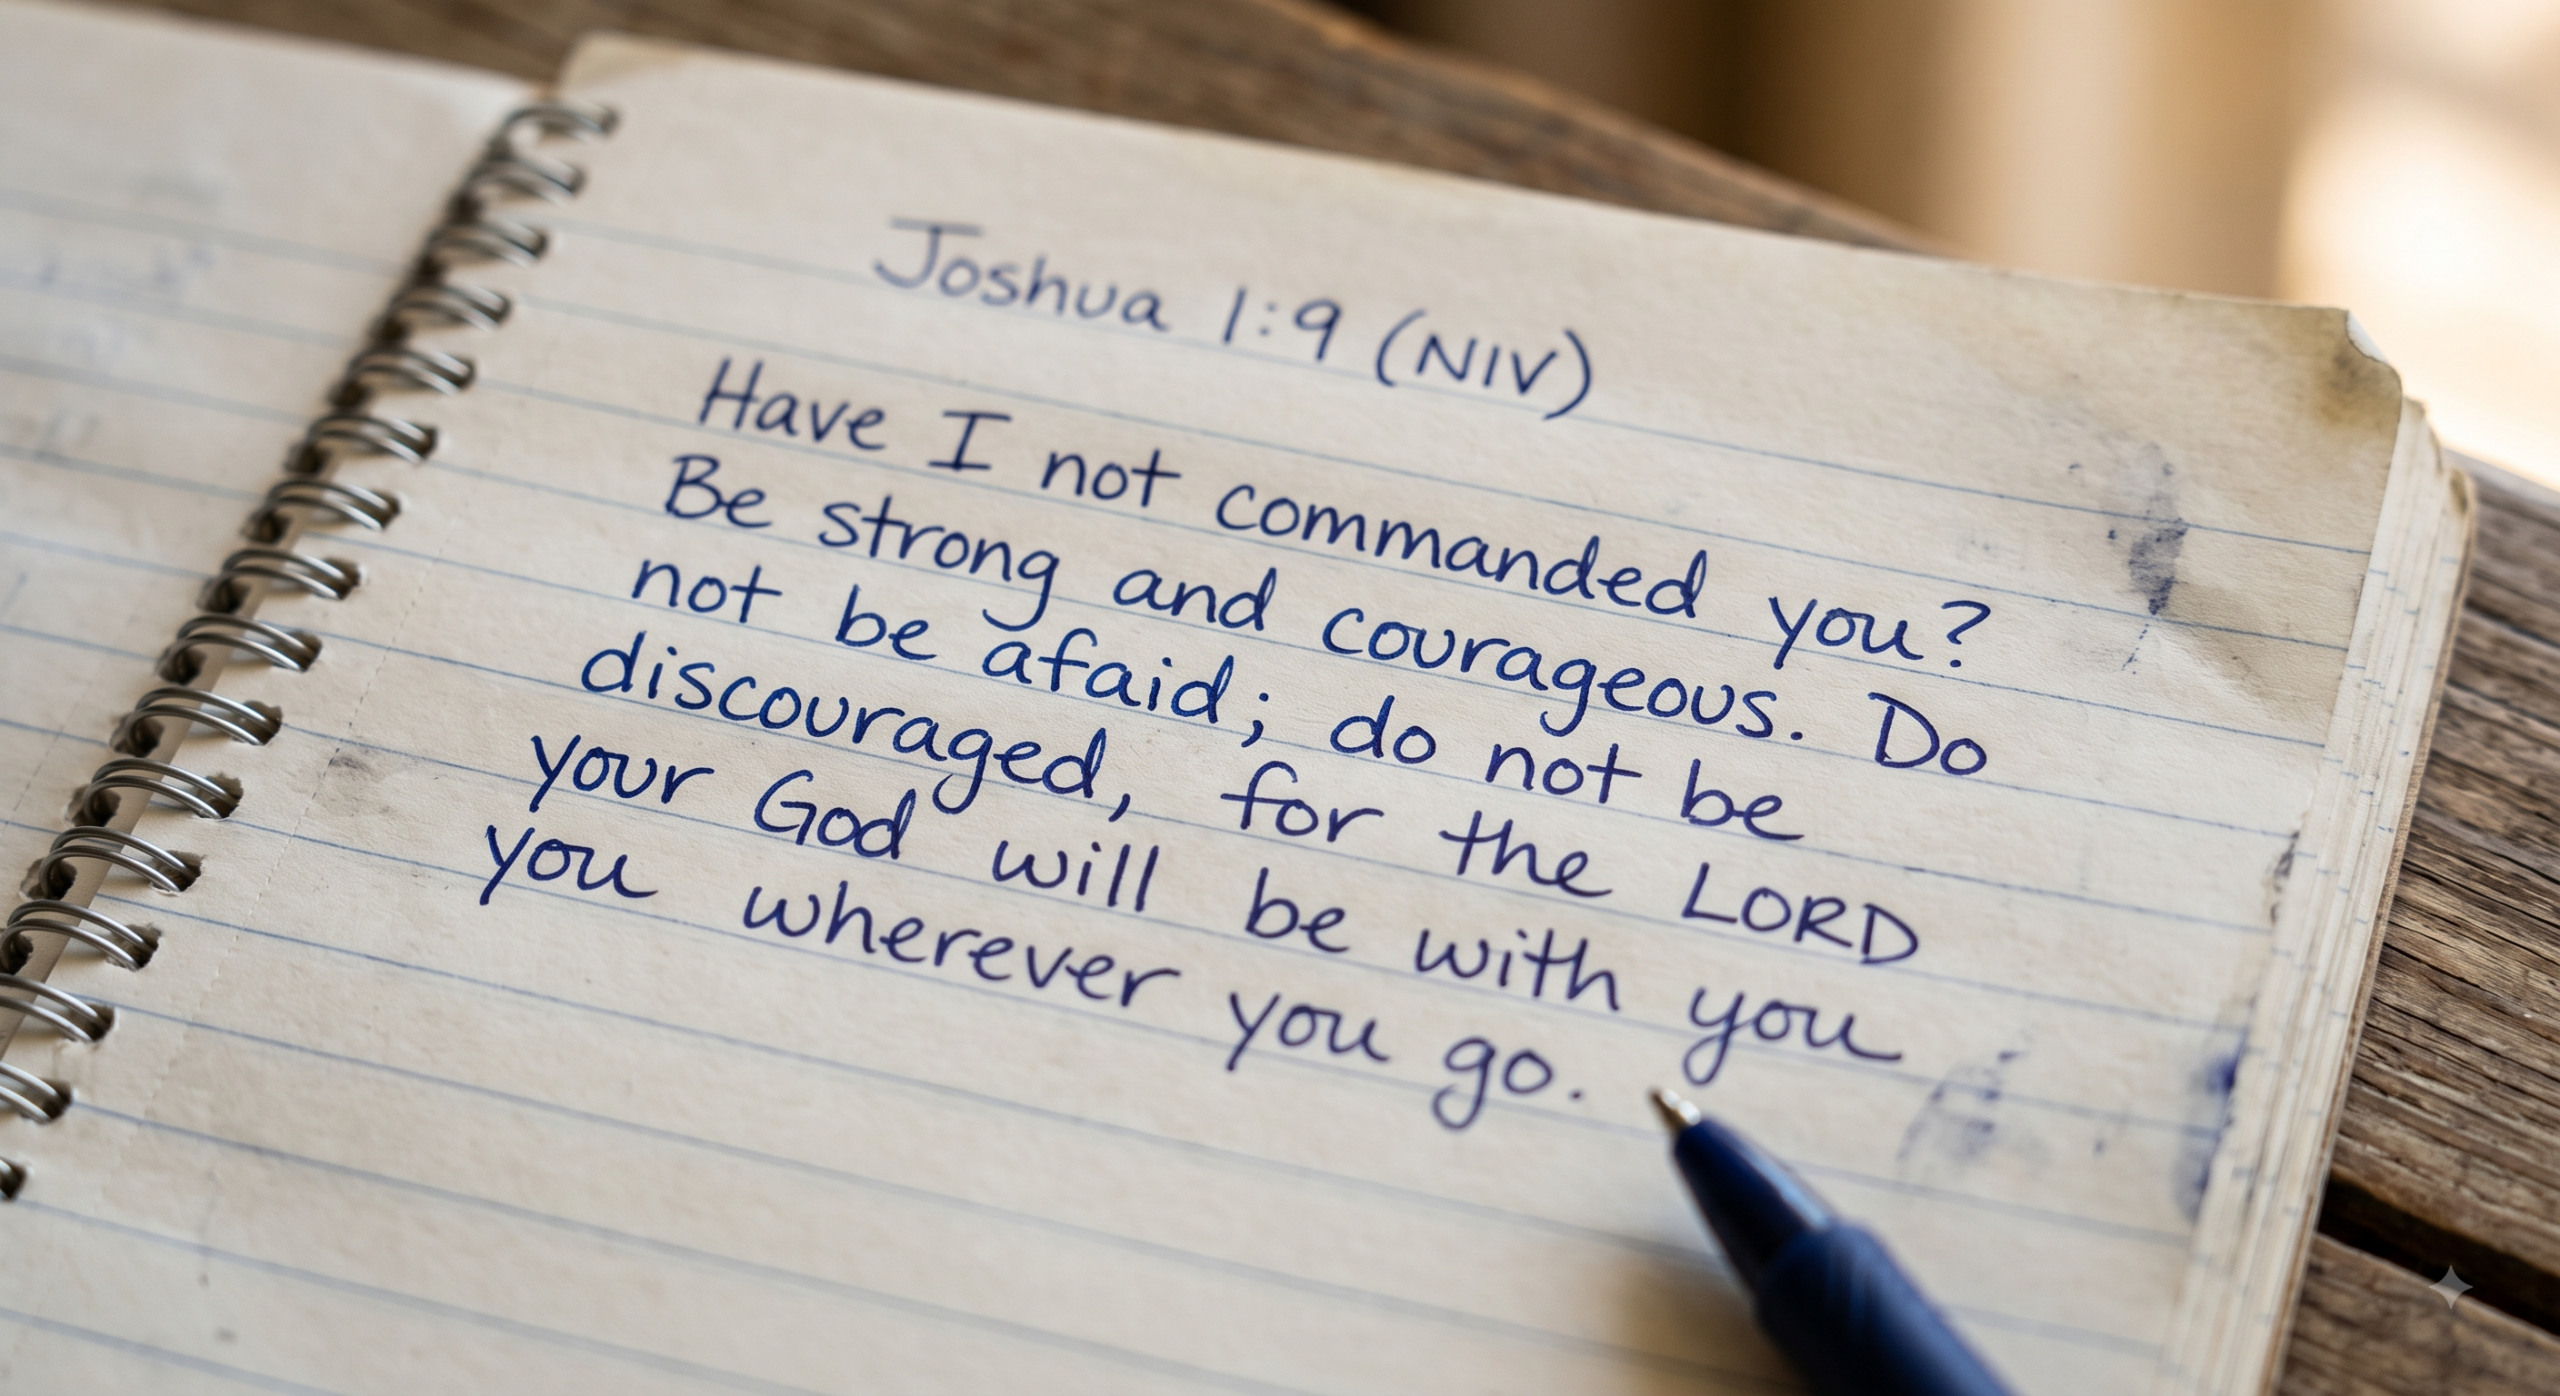 Joshua 1:9 (NIV)
Have I not commanded you?
Be strong and courageous. Do
not be afaid; do not be
discouraged, for the LORD
your God will be with you
you wherever you go.